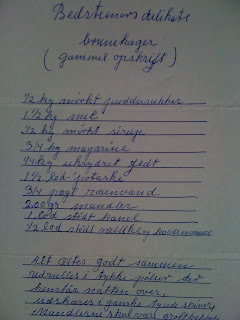 Bedstemors delikate
brunekager
(gammel opskrift)
1/2 kg mørkt puddersukker
1 1/2 kg mel
1/2 kg mørk sirup
3/4 kg magarine
1/4 kg ukrydret fedt
1 1/2 lod potaske
3/4 pægl rosenvand
200 gr mandler
1 lod stødt kanel
1/2 lod stødt kardemomme
Alt æltes godt sammen
udrulles i tykke pølser der
henstår natten over,
udskæres i ganske tynde skiver,
Mandlerne skal være